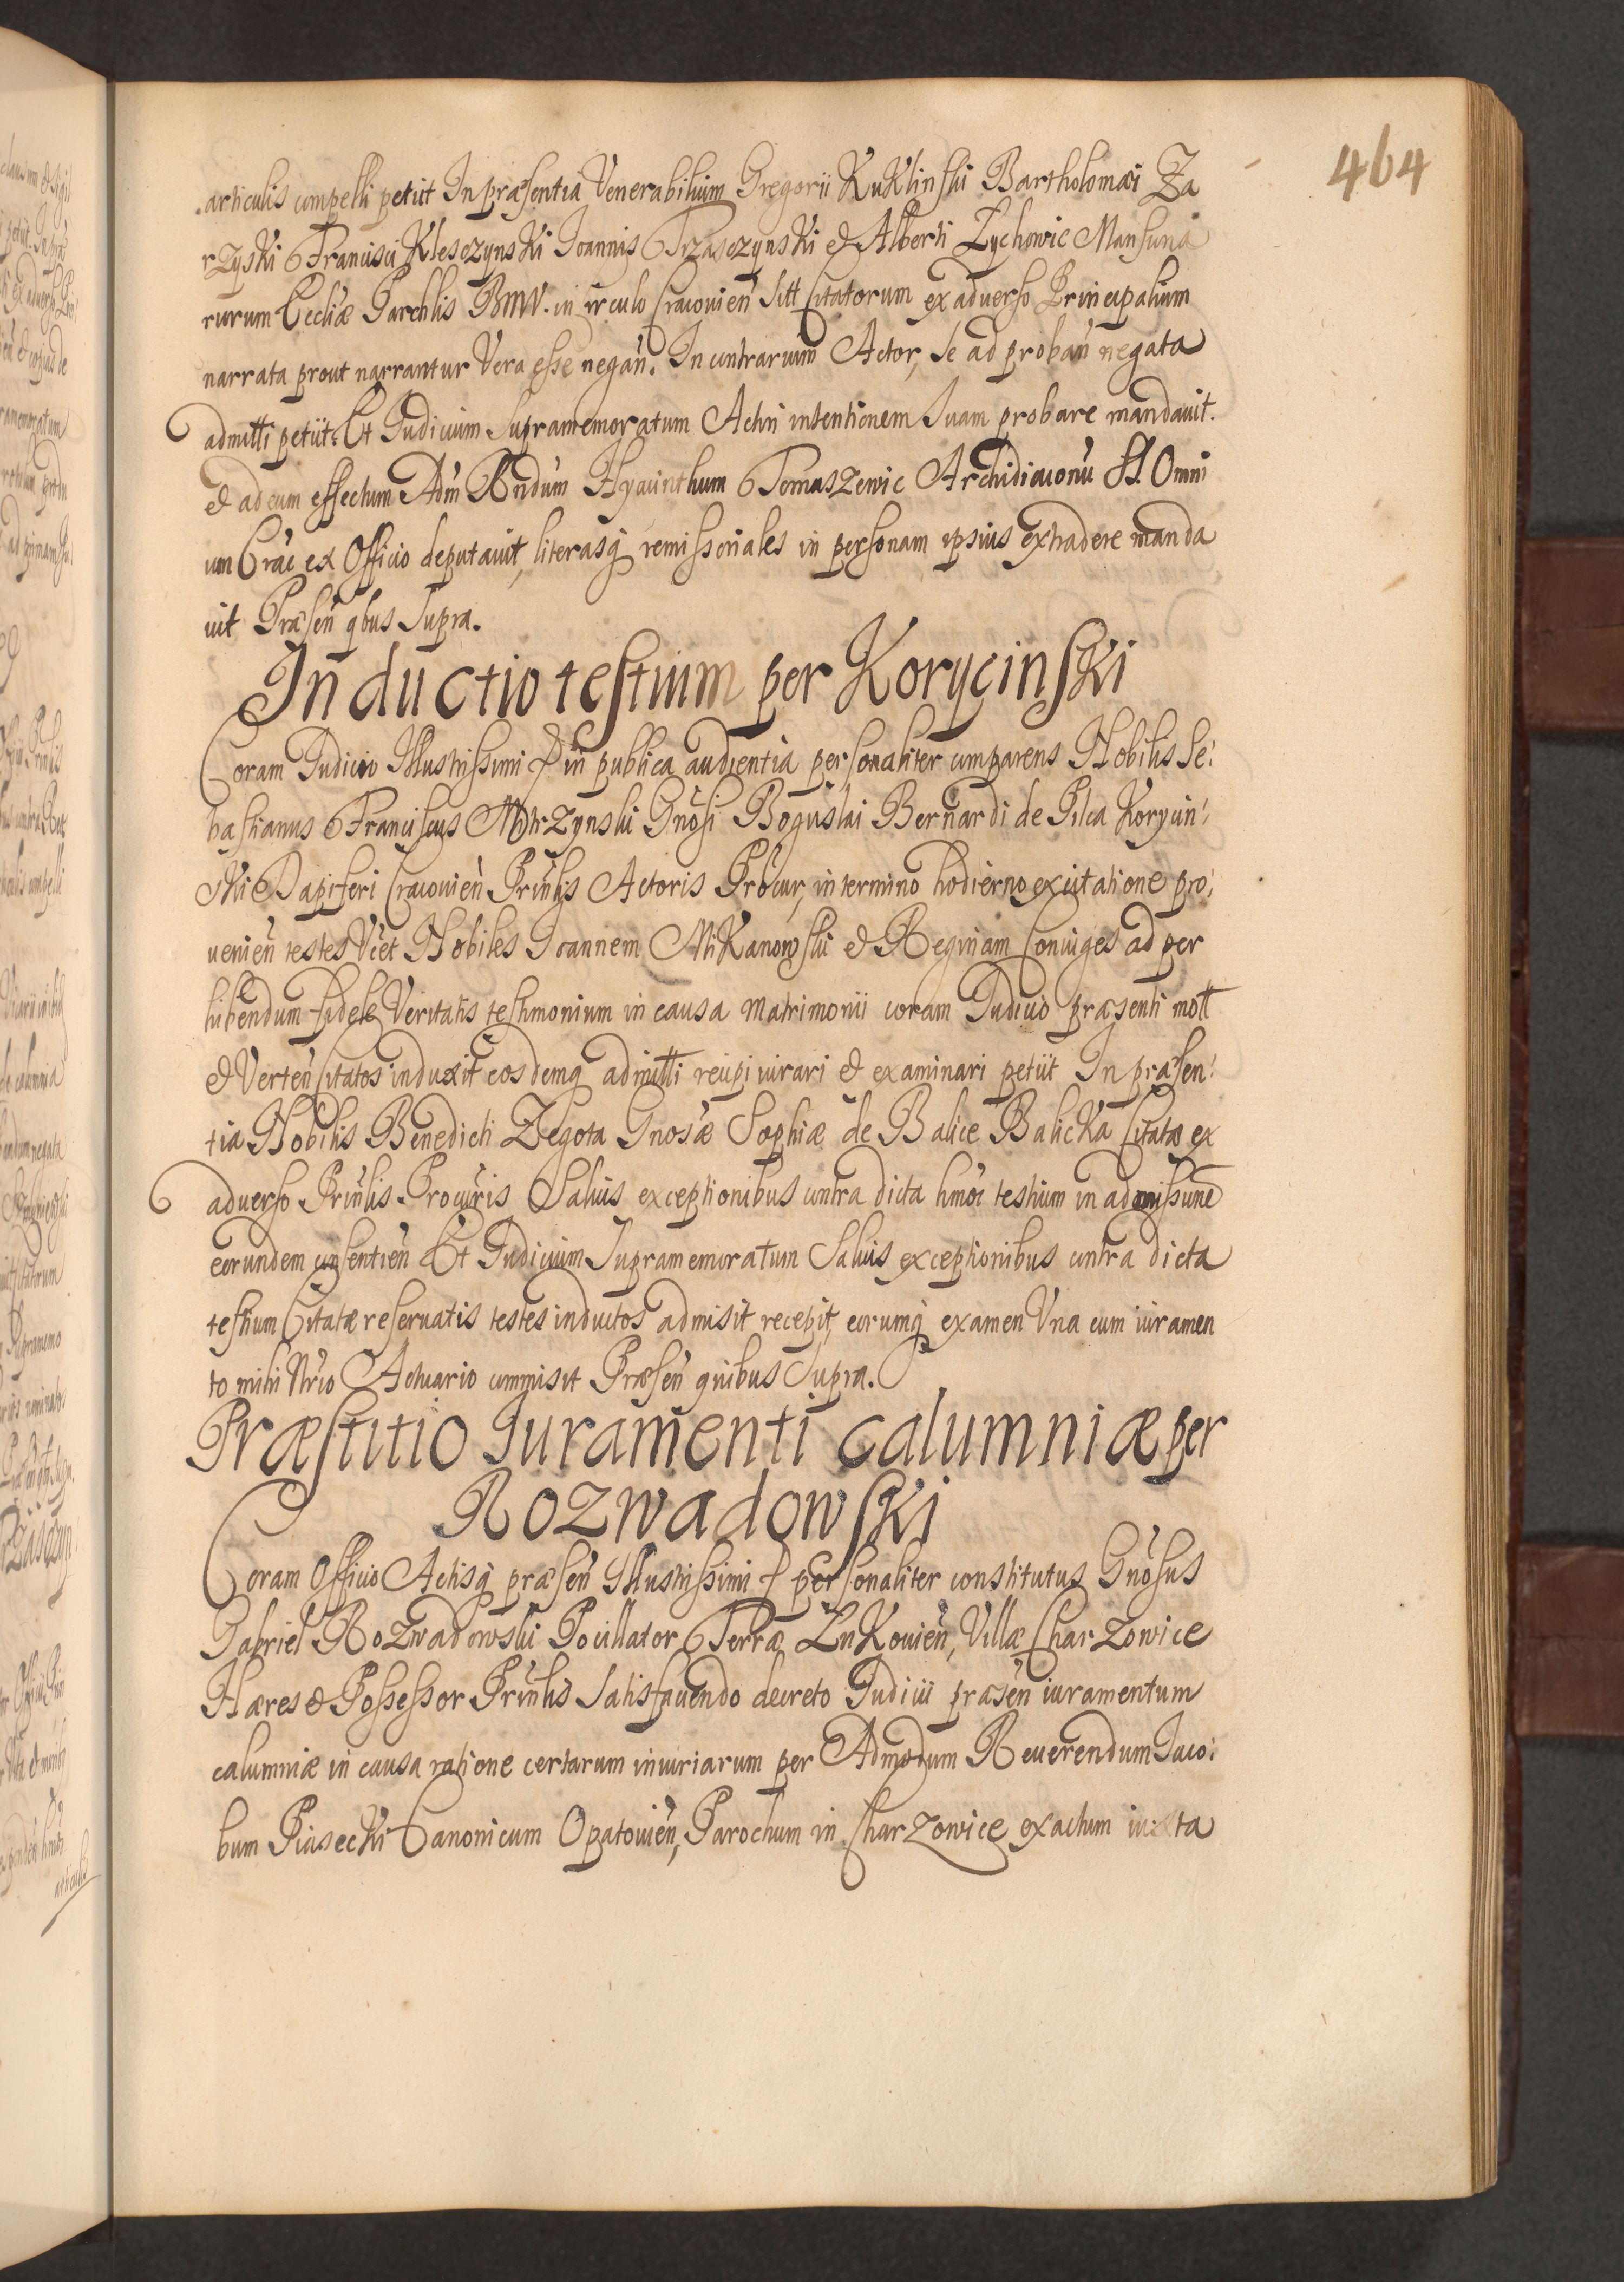 464
articulis compelli petiit In præsentia Venerabilium Gregorii KuKlinski Bartholomæi Za
rzyski Francisci KlesczynsKi Joannis TrzasczynsKi & Alberti Zychowic Mansiona
riorum Eccliæ Parchlis BMV. in circulo Cracouień sitt Citatorum ex aduerso Principalium
narrata prout narrantur Vera esse negań. In contrarium Actor, se ad probań negata
admitti petiit. Et Judicium supramemoratum Actri intentionem suam probare mandauit.
& ad eum effectum Adm Rndum Hyacinthum Tomaszewic Archidiaconū SS. Omni
um Crac ex Officio deputauit, literasq remissoriales in personam ipsius extradere manda
uit Præseń qbus supra.
Inductio testium per KorycinsKi
Coram Judicio Illustrissimi & in publica audientia personaliter comparens Nobilis Se:
bastianus Franciscus Gnosi Boguslai Bernardi de Pilca Korycin:
sKi Dapiferi Cracouień Prinlis Actoris Procur, in termino hodierno ex citatione pro:
uenień testes Vcet Nobiles Joannem MiKanowski & Reginam Coniuges ad per
hibendum fidele Veritatis testimonium in causa matrimonii coram Judicio præsenti mott
& Verteń Citatos induxit eosdemq admitti recipi iurari & examinari petiit In præsen:
tia Nobilis Benedicti Zegota Gnosæ Sophiæ de Balice BalicKa Citatæ ex
aduerso Prinlis Procuris Saluis exceptionibus contra dicta hmoi testium in admissione
eorundem consentień Et Judicium Supramemoratum Saluis exceptionibus contra dicta
testium Citatæ reseruatis testes inductos admisit recepit, eorumq examen Vna cum iuramen
to mihi Nrio Actuario commisit Præseń quibus Supra.
Præstitio Juramenti calumniæ per
RozwadowsKi
Coram Officio Actisq præseń Illustrissimi & personaliter constitutus Gnosus
Gabriel Rozwadowski Pocillator Terræ ŁuKouień, Villæ Charzowice
Hæres & Possessor Prinlis Satisfaciendo decreto Judicii præseń iuramentum
calumniæ in causa ratione certarum iniuriarum per Admodum Reuerendum Jaco:
bum PiasecKi Canonicum Opatouień, Parochum in Charzowice exactum iuxta